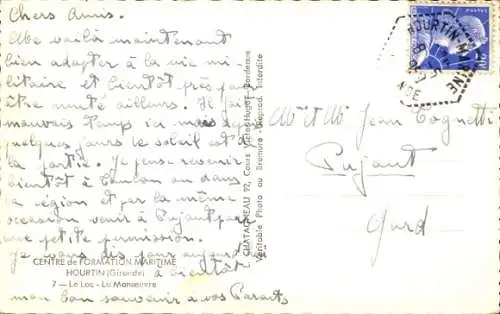 Chers Amis.
Me voilà maintenant
bien adapter à la vie mi-
litaire et bientôt près pour
être muté ailleurs. Il fait
mauvais temps ici mais depuis
quelques jours le soleil est de
la partie. Je pense revenir
bientôt à Toulon ou dans
la région et par la même
occasion venir à Pujaut par
une petite permission.
Je vous dis pour aujourd'hui
à bientôt
mon bon souvenir à vos Parents
CENTRE de FORMATION MARITIME
HOURTIN (Gironde)
7 — Le Lac - La Manœuvre
L. CHATAGNEAU 22, Cours Victor-Hugo - Bordeaux
Véritable Photo au Bromure - Reprod. Interdite
HOURTIN-MARINE
Mr et Mme Jean Cognetti
Pujaut
Gard